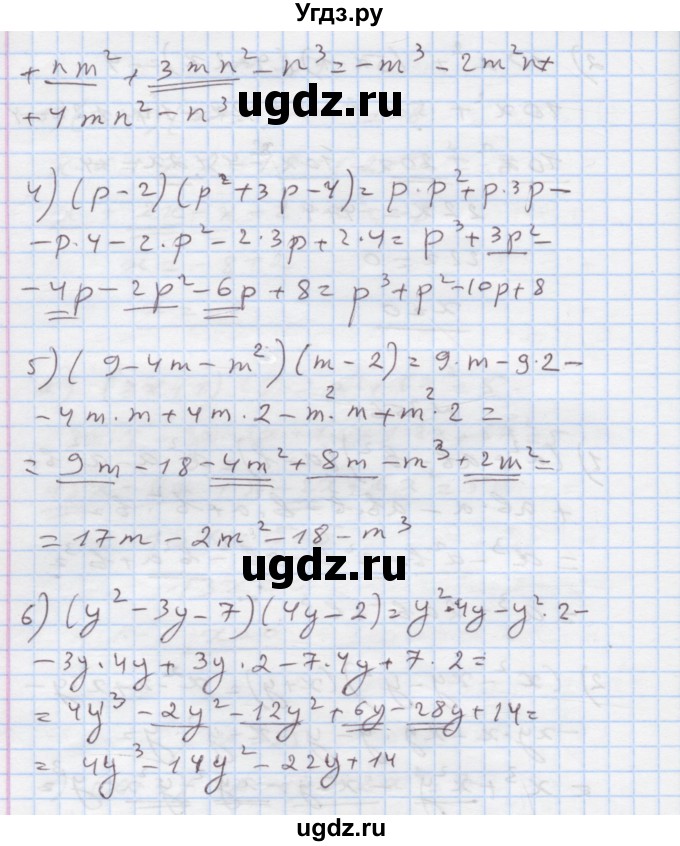 Угдз.ру
+ nm² + 3mn² - n³ = -m³ - 2m²n +
+ 4mn² - n³
ugdz.ru
4) (p-2)(p²+3p-4) = p·p²+p·3p-
-p·4-2·p²-2·3p+2·4 = p³+3p²-
-4p-2p²-6p+8 = p³+p²-10p+8
ugdz.ru
5) (9-4m-m²)(m-2) = 9·m-9·2-
-4m·m+4m·2-m²·m+m²·2 =
= 9m-18-4m²+8m-m³+2m² =
= 17m-2m²-18-m³
ugdz.ru
6) (y²-3y-7)(4y-2) = y²·4y-y²·2-
-3y·4y+3y·2-7·4y+7·2 =
= 4y³-2y²-12y²+6y-28y+14 =
= 4y³-14y²-22y+14
ugdz.ru
ugdz.ru